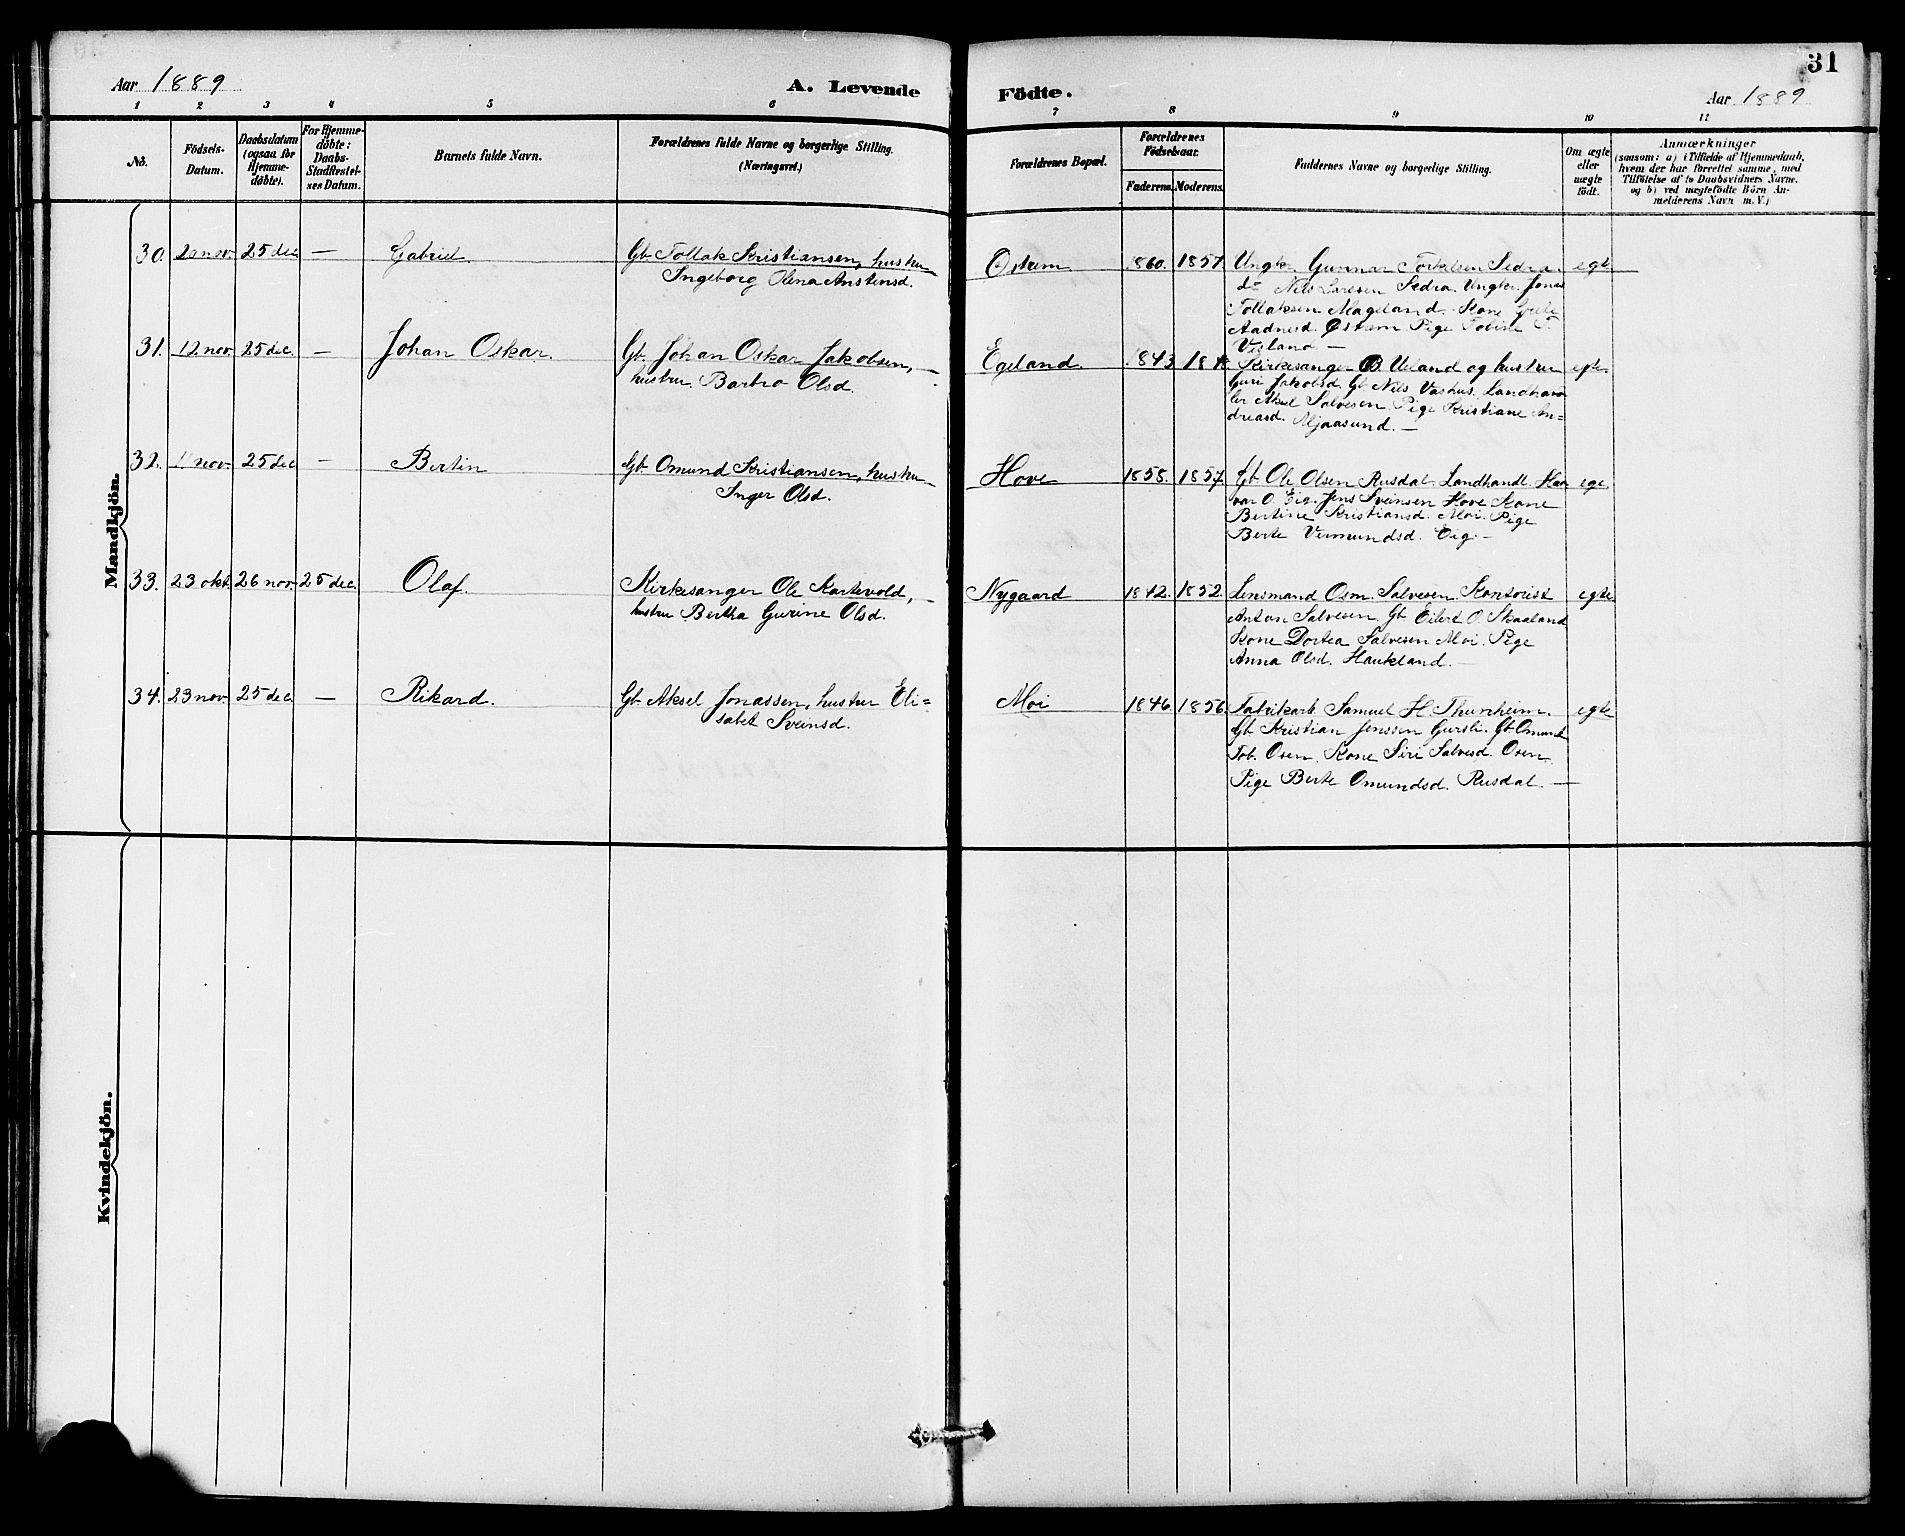 31
Aar 1889
A. Levende Födte.
Aar 1889
1 2 3 4 5 6 7 8 9 10 11
No.
Födsels-Datum.
Daabsdatum (ogsaa for Hjemme-döbte).
For Hjemme-döbte: Daabs-Stadfæstel-ses Datum.
Barnets fulde Navn.
Forældrenes fulde Navne og borgerlige Stilling. (Næringsvei.)
Forældrenes Bopæl.
Forældrenes Födselsaar.
Faderens. Moderens.
Faddernes Navne og borgerlige Stilling.
Om ægte eller uægte födt.
Anmærkninger
(saasom: a) (Tilfælde af Hjemmedaab,
hvem der har forrettet samme, med
Tilföielse af to Daabsvidners Navne.
og b) ved uægtefödte Börn An-
melderens Navn m. V.)
Mandkjön.
30. 20 nov. 25 dec. — Gabriel
Gb. Tollak Kristiansen, hustru
Ingeborg Olena Anstensd.
Østrem 1860. 1857.
Ungkr. Gunnar Torkelsen Sedra.
do Nils Larsen Sedra. Ungkr. Jonas
Tollaksen Mageland. Kone Grete
Aadnesd. Østrem Pige Tobine T.
Vesland —
egte
31. 12 nov. 25 dec. — Johan Oskar.
Gb. Johan Oskar Jakobsen, —
hustru. Barbro Olsd.
Egeland. 1843
Kirkesanger B. Ueland og hustru
Guri Jakobsd. Gb. Nils Vashus. Landhand
ler Aksel Salvesen. Pige Kristiane An=
dreasd. Mjaasund. —
egte
32. 25 dec — Bertin
Gb. Omund Kristiansen, hustru
Inger Olsd.
Hove 1858. 1857.
Gb. Ole Olsen Rusdal. Landhandl. Haa
var O. Eig. Jens Sveinsen Hove Kone
Bertine Kristiansd. Moi. Pige
Berte Vermundsd. Eig. —
egte
33. 23 okt. 26 nov. 25 dec. Olaf.
Kirkesanger Ole Kartevold, —
hustru Bertha Gurine Olsd.
Nygaard 1842. 1852.
Lensmand Osm. Salvesen. Kontorist
Anton Salvesen. Gb. Eilert O. Skaaland
Kone Dortea Salvesen Moi. Pige
Anna Olsd. Haukland. —
egte
34. 23 nov. 25 dec. — Rikard.
Gb. Aksel Jonassen, hustru Eli=
sabet Sveinsd.
Moi 1846. 1856.
Fabrikarb. Samuel H. Thunheim.
Gb. Kristian Jenssen Gursli. Gb. Omund
Tob. Osen. Kone Siri Salvesd. Osen.
Pige Berte Omundsd. Rusdal. —
egte
Kvindekjön.